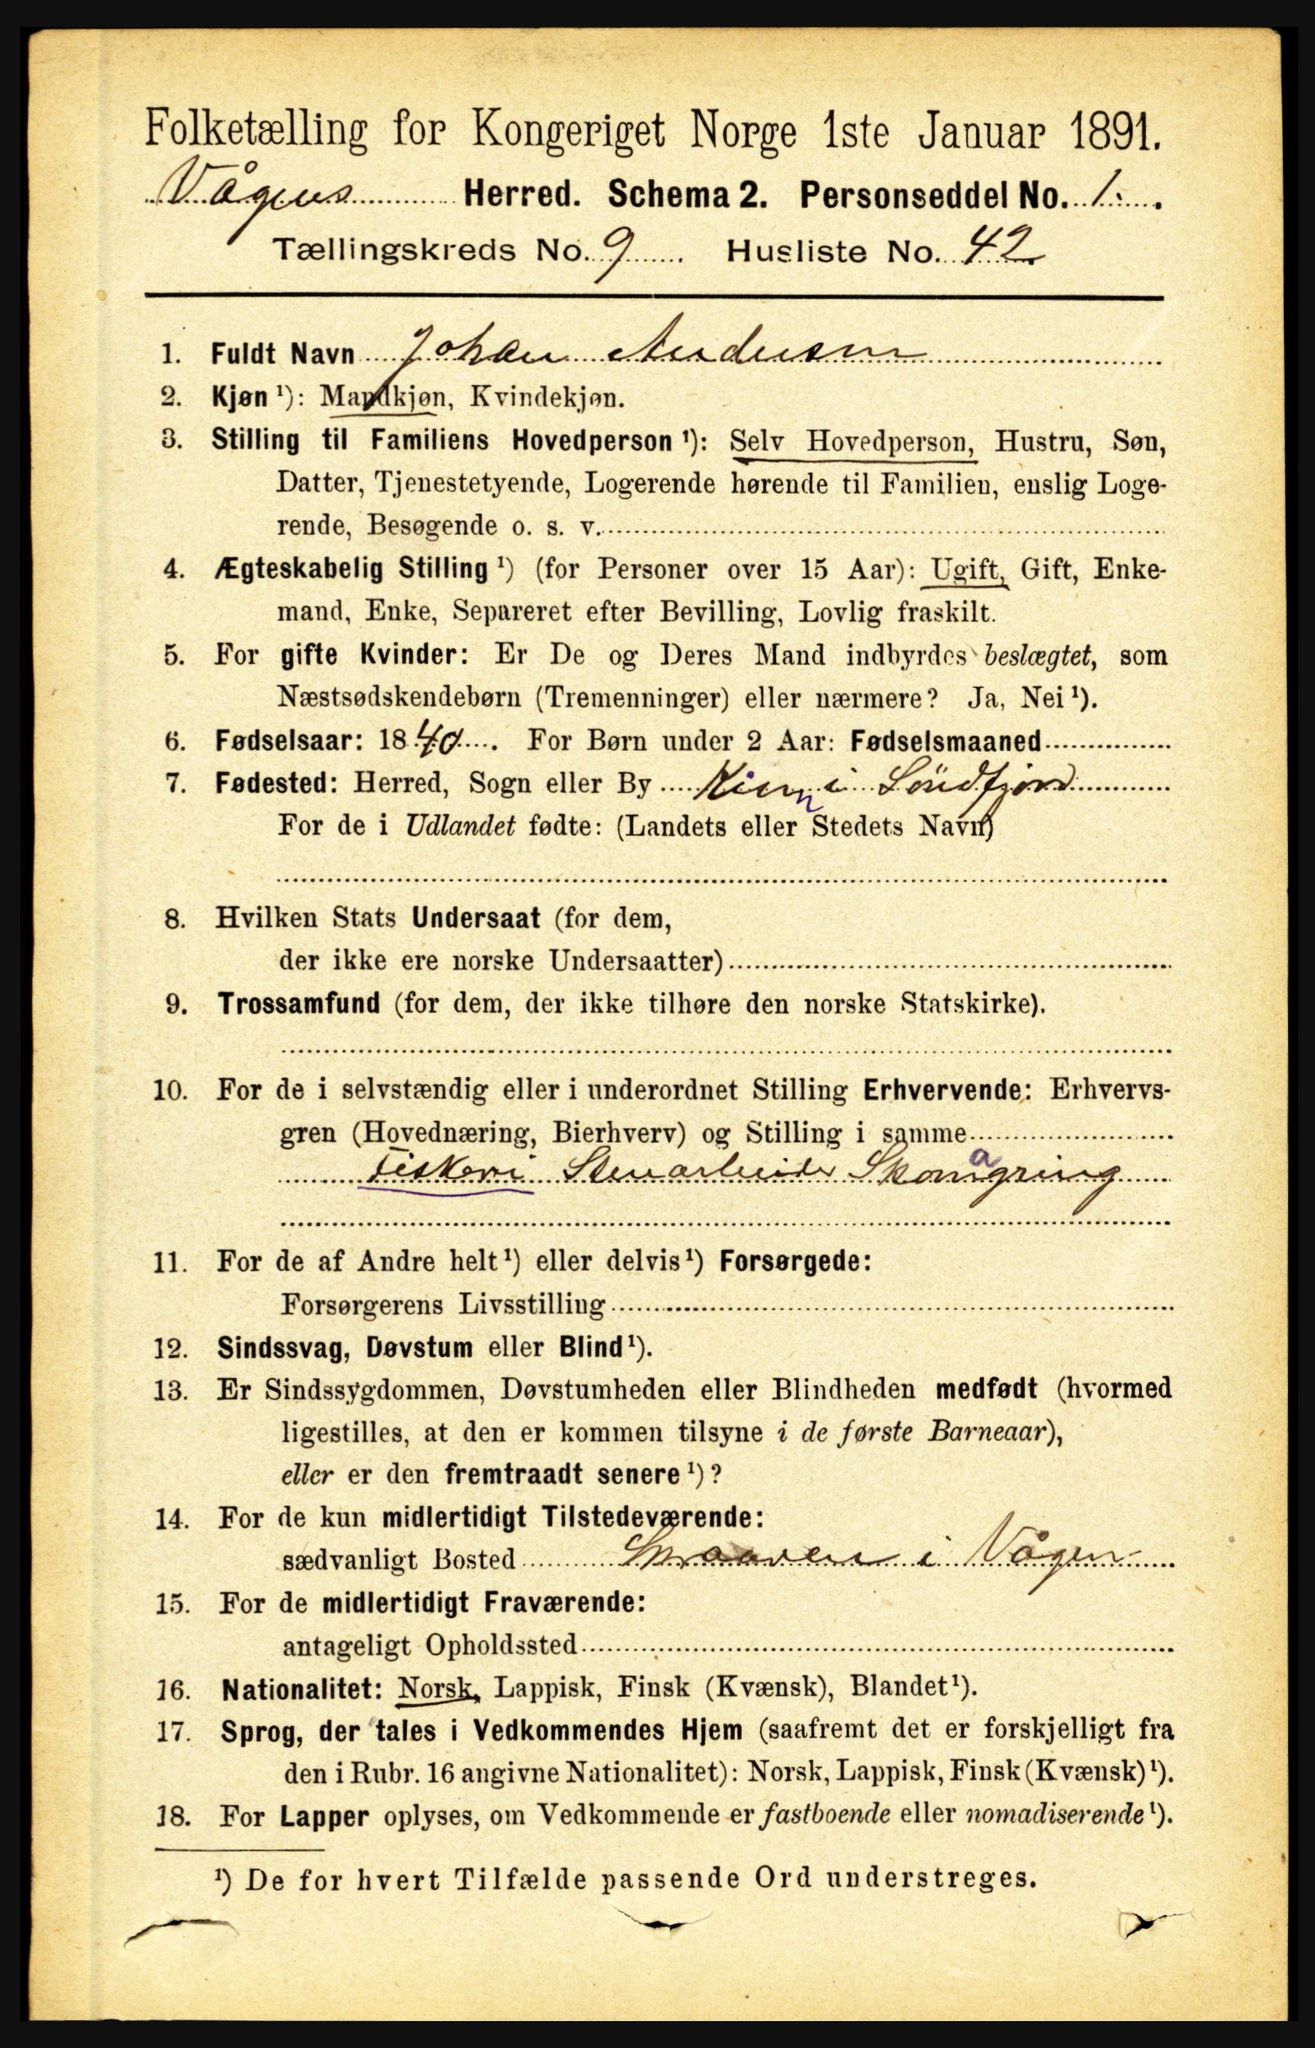 Folketælling for Kongeriget Norge 1ste Januar 1891.
Vågens Herred. Schema 2. Personseddel No. 1.
Tællingskreds No. 9 Husliste No. 42
1. Fuldt Navn Johan Andersen
2. Kjøn ¹): Mandkjøn, Kvindekjøn.
3. Stilling til Familiens Hovedperson ¹): Selv Hovedperson, Hustru, Søn,
Datter, Tjenestetyende, Logerende hørende til Familien, enslig Loge-
rende, Besøgende o. s. v.
4. Ægteskabelig Stilling ¹) (for Personer over 15 Aar): Ugift, Gift, Enke-
mand, Enke, Separeret efter Bevilling, Lovlig fraskilt.
5. For gifte Kvinder: Er De og Deres Mand indbyrdes beslægtet, som
Næstsødskendebørn (Tremenninger) eller nærmere? Ja, Nei ¹).
6. Fødselsaar: 1840. For Børn under 2 Aar: Fødselsmaaned
7. Fødested: Herred, Sogn eller By Kinn i Søndfjord
For de i Udlandet fødte: (Landets eller Stedets Navn)
8. Hvilken Stats Undersaat (for dem,
der ikke ere norske Undersaatter)
9. Trossamfund (for dem, der ikke tilhøre den norske Statskirke).
10. For de i selvstændig eller i underordnet Stilling Erhvervende: Erhvervs-
gren (Hovednæring, Bierhverv) og Stilling i samme
Fiskeri Stenarbeider
11. For de af Andre helt ¹) eller delvis ¹) Forsørgede:
Forsørgerens Livsstilling
12. Sindssvag, Døvstum eller Blind ¹).
13. Er Sindssygdommen, Døvstumheden eller Blindheden medfødt (hvormed
ligestilles, at den er kommen tilsyne i de første Barneaar),
eller er den fremtraadt senere ¹)?
14. For de kun midlertidigt Tilstedeværende:
sædvanligt Bosted i Vågen
15. For de midlertidigt Fraværende:
antageligt Opholdssted
16. Nationalitet: Norsk, Lappisk, Finsk (Kvænsk), Blandet ¹).
17. Sprog, der tales i Vedkommendes Hjem (saafremt det er forskjelligt fra
den i Rubr. 16 angivne Nationalitet): Norsk, Lappisk, Finsk (Kvænsk) ¹).
18. For Lapper oplyses, om Vedkommende er fastboende eller nomadiserende ¹).
¹) De for hvert Tilfælde passende Ord understreges.